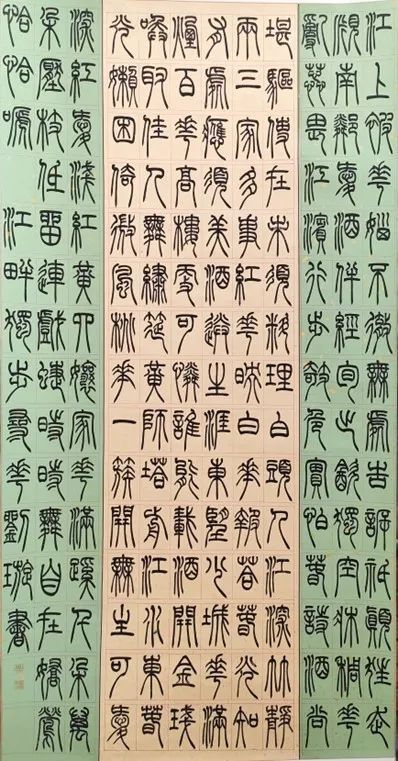 江上被花惱不徹無處告訴祇顛狂走
覓南鄰愛酒伴經旬出飲獨空牀稠花
亂蕊畏江濱行步欹危實怕春詩酒尚
堪驅使在未須料理白頭人江深竹靜
兩三家多事紅花映白花報答春光知
有處應須美酒送生涯東望少城花滿
煙百花高樓更可憐誰能載酒開金琖
喚取佳人舞繡筵黃師塔前江水東春
光懶困倚微風桃花一簇開無主可愛
深紅愛淺紅黃四孃家花滿蹊千朵萬
朵壓枝低留連戲蜨時時舞自在嬌鶯
恰恰啼 江畔獨步尋花 劉書